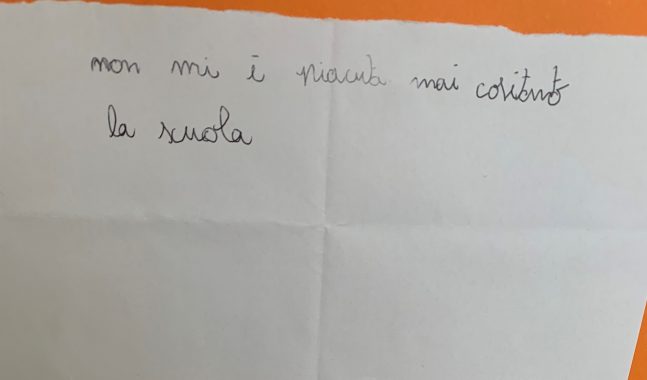 non mi è piaciuta mai cositanto
la scuola